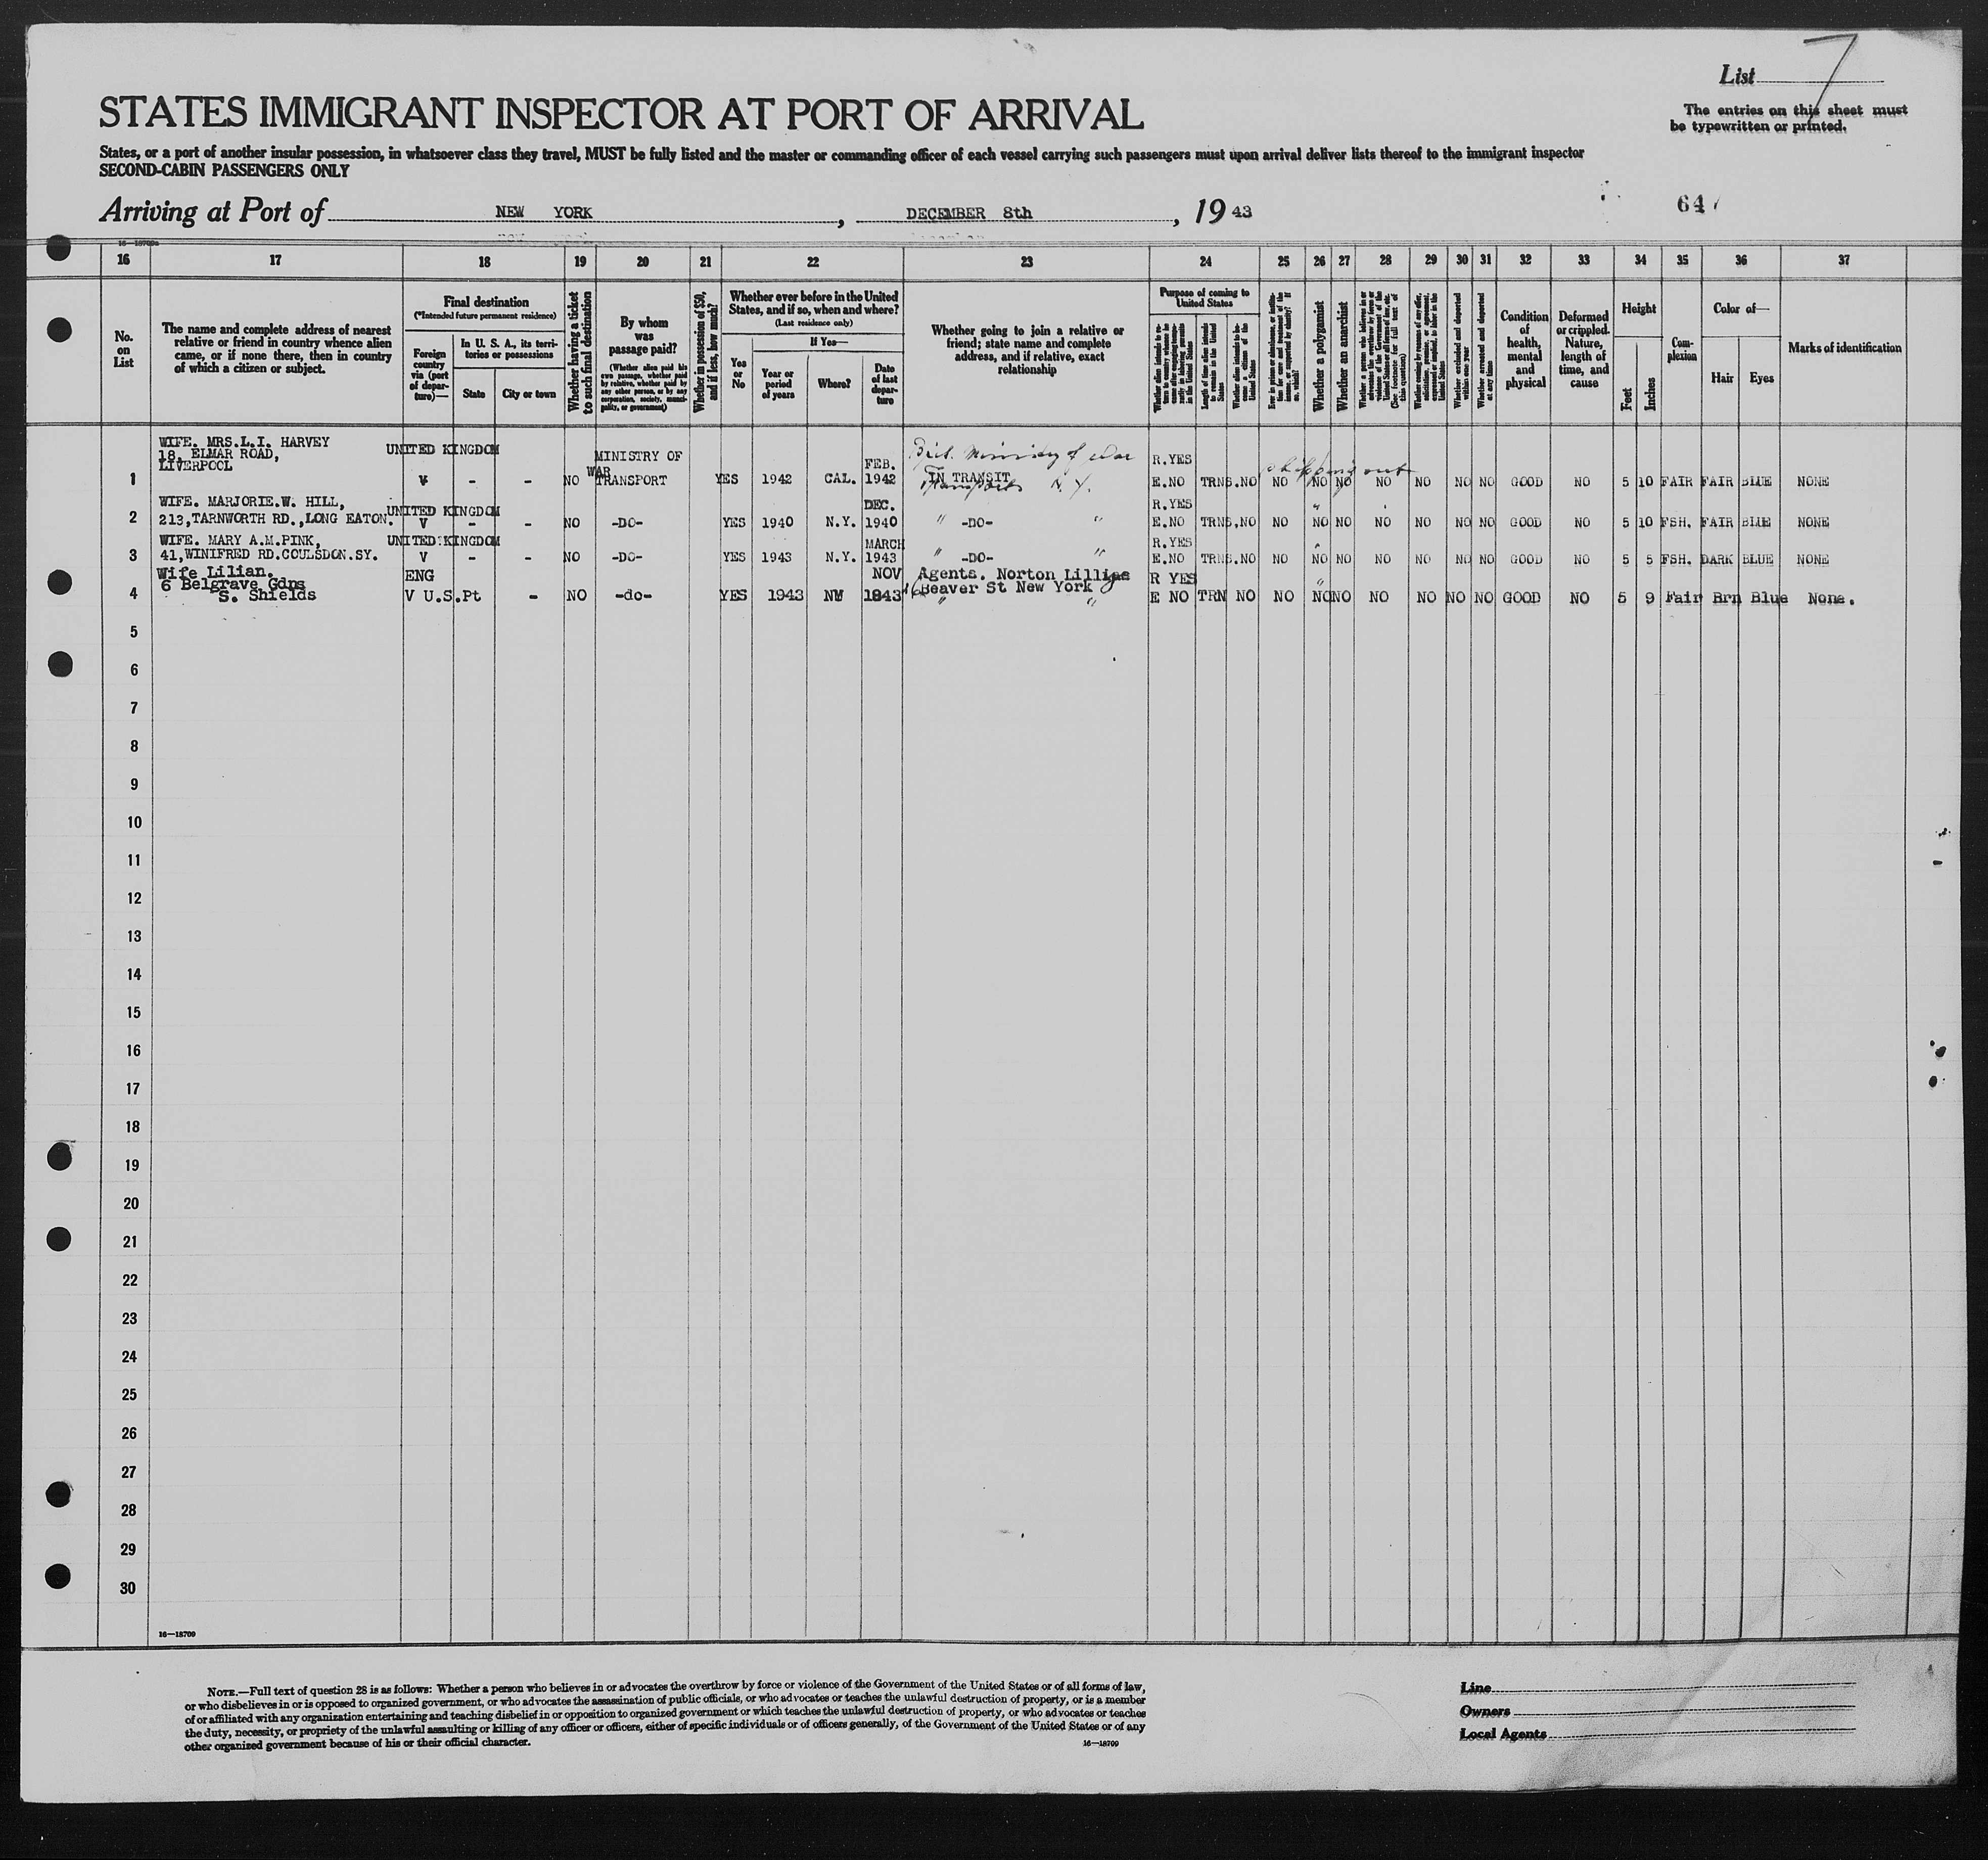 List 7
The entries on this sheet must
be typewritten or printed.
STATES IMMIGRANT INSPECTOR AT PORT OF ARRIVAL
States, or a port of another insular possession, in whatsoever class they travel, MUST be fully listed and the master or commanding officer of each vessel carrying such passengers must upon arrival deliver lists thereof to the immigrant inspector
SECOND-CABIN PASSENGERS ONLY
Arriving at Port of NEW YORK, DECEMBER 8th, 19 43
64
16 17 18 19 20 21 22 23 24 25 26 27 28 29 30 31 32 33 34 35 36 37
No.
on
List
The name and complete address of nearest
relative or friend in country whence alien
came, or if none there, then in country
of which a citizen or subject.
Final destination
(*Intended future permanent residence)
Foreign
country
via (port
of depar-
ture)—
In U. S. A., its terri-
tories or possessions
State
City or town
Whether having a ticket
to such final destination
By whom
was
passage paid?
(Whether alien paid his
own passage, whether paid
by relative, whether paid by
any other person, or by any
corporation, society, munici-
pality, or government)
Whether in possession of $50,
and if less, how much?
Whether ever before in the United
States, and if so, when and where?
(Last residence only)
Yes
or
No
If Yes—
Year or
period
of years
Where?
Date
of last
depar-
ture
Whether going to join a relative or
friend; state name and complete
address, and if relative, exact
relationship
Purpose of coming to
United States
Length of time alien intends
to remain in the United
States
Whether alien intends to be-
come a citizen of the
United States
Whether a polygamist
Whether an anarchist
(See footnote for full text of
this question)
Whether arrested and deported
at any time
Condition
of
health,
mental
and
physical
Deformed
or crippled.
Nature,
length of
time, and
cause
Height
Feet
Inches
Com-
plexion
Color of—
Hair
Eyes
Marks of identification
WIFE. MRS.L.I. HARVEY
18, ELMAR ROAD,
LIVERPOOL
UNITED KINGDOM
MINISTRY OF
WAR
TRANSPORT
FEB.
Brit. Ministry of War
Transports N.Y.
R.YES
1 V - - NO YES 1942 CAL. 1942 IN TRANSIT E.NO TRNS.NO NO NO NO NO NO NO NO GOOD NO 5 10 FAIR FAIR BLUE NONE
WIFE. MARJORIE.W. HILL, UNITED KINGDOM DEC. R.YES
2 213,TARNWORTH RD.,LONG EATON. V - - NO -DO- YES 1940 N.Y. 1940 " -DO- " E.NO TRNS.NO NO NO NO NO NO NO NO GOOD NO 5 10 FSH. FAIR BLUE NONE
WIFE. MARY A.M.PINK, UNITED KINGDOM MARCH R.YES
3 41,WINIFRED RD.COULSDON.SY. V - - NO -DO- YES 1943 N.Y. 1943 " -DO- " E.NO TRNS.NO NO NO NO NO NO NO NO GOOD NO 5 5 FSH. DARK BLUE NONE
Wife Lilian. ENG NOV Agents. Norton R YES
6 Belgrave Gdns Beaver St New York
4 S. Shields V U.S.Pt - NO -do- YES 1943 1943 " " E NO TRN NO NO NO NO NO NO NO NO GOOD NO 5 9 Fair Brn Blue None.
5
6
7
8
9
10
11
12
13
14
15
16
17
18
19
20
21
22
23
24
25
26
27
28
29
30
16—18709
NOTE.—Full text of question 28 is as follows: Whether a person who believes in or advocates the overthrow by force or violence of the Government of the United States or of all forms of law,
or who disbelieves in or is opposed to organized government, or who advocates the assassination of public officials, or who advocates or teaches the unlawful destruction of property, or is a member
of or affiliated with any organization entertaining and teaching disbelief in or opposition to organized government or which teaches the unlawful destruction of property, or who advocates or teaches
the duty, necessity, or propriety of the unlawful assaulting or killing of any officer or officers, either of specific individuals or of officers generally, of the Government of the United States or of any
other organized government because of his or their official character.
16—18709
Line
Owners
Local Agents